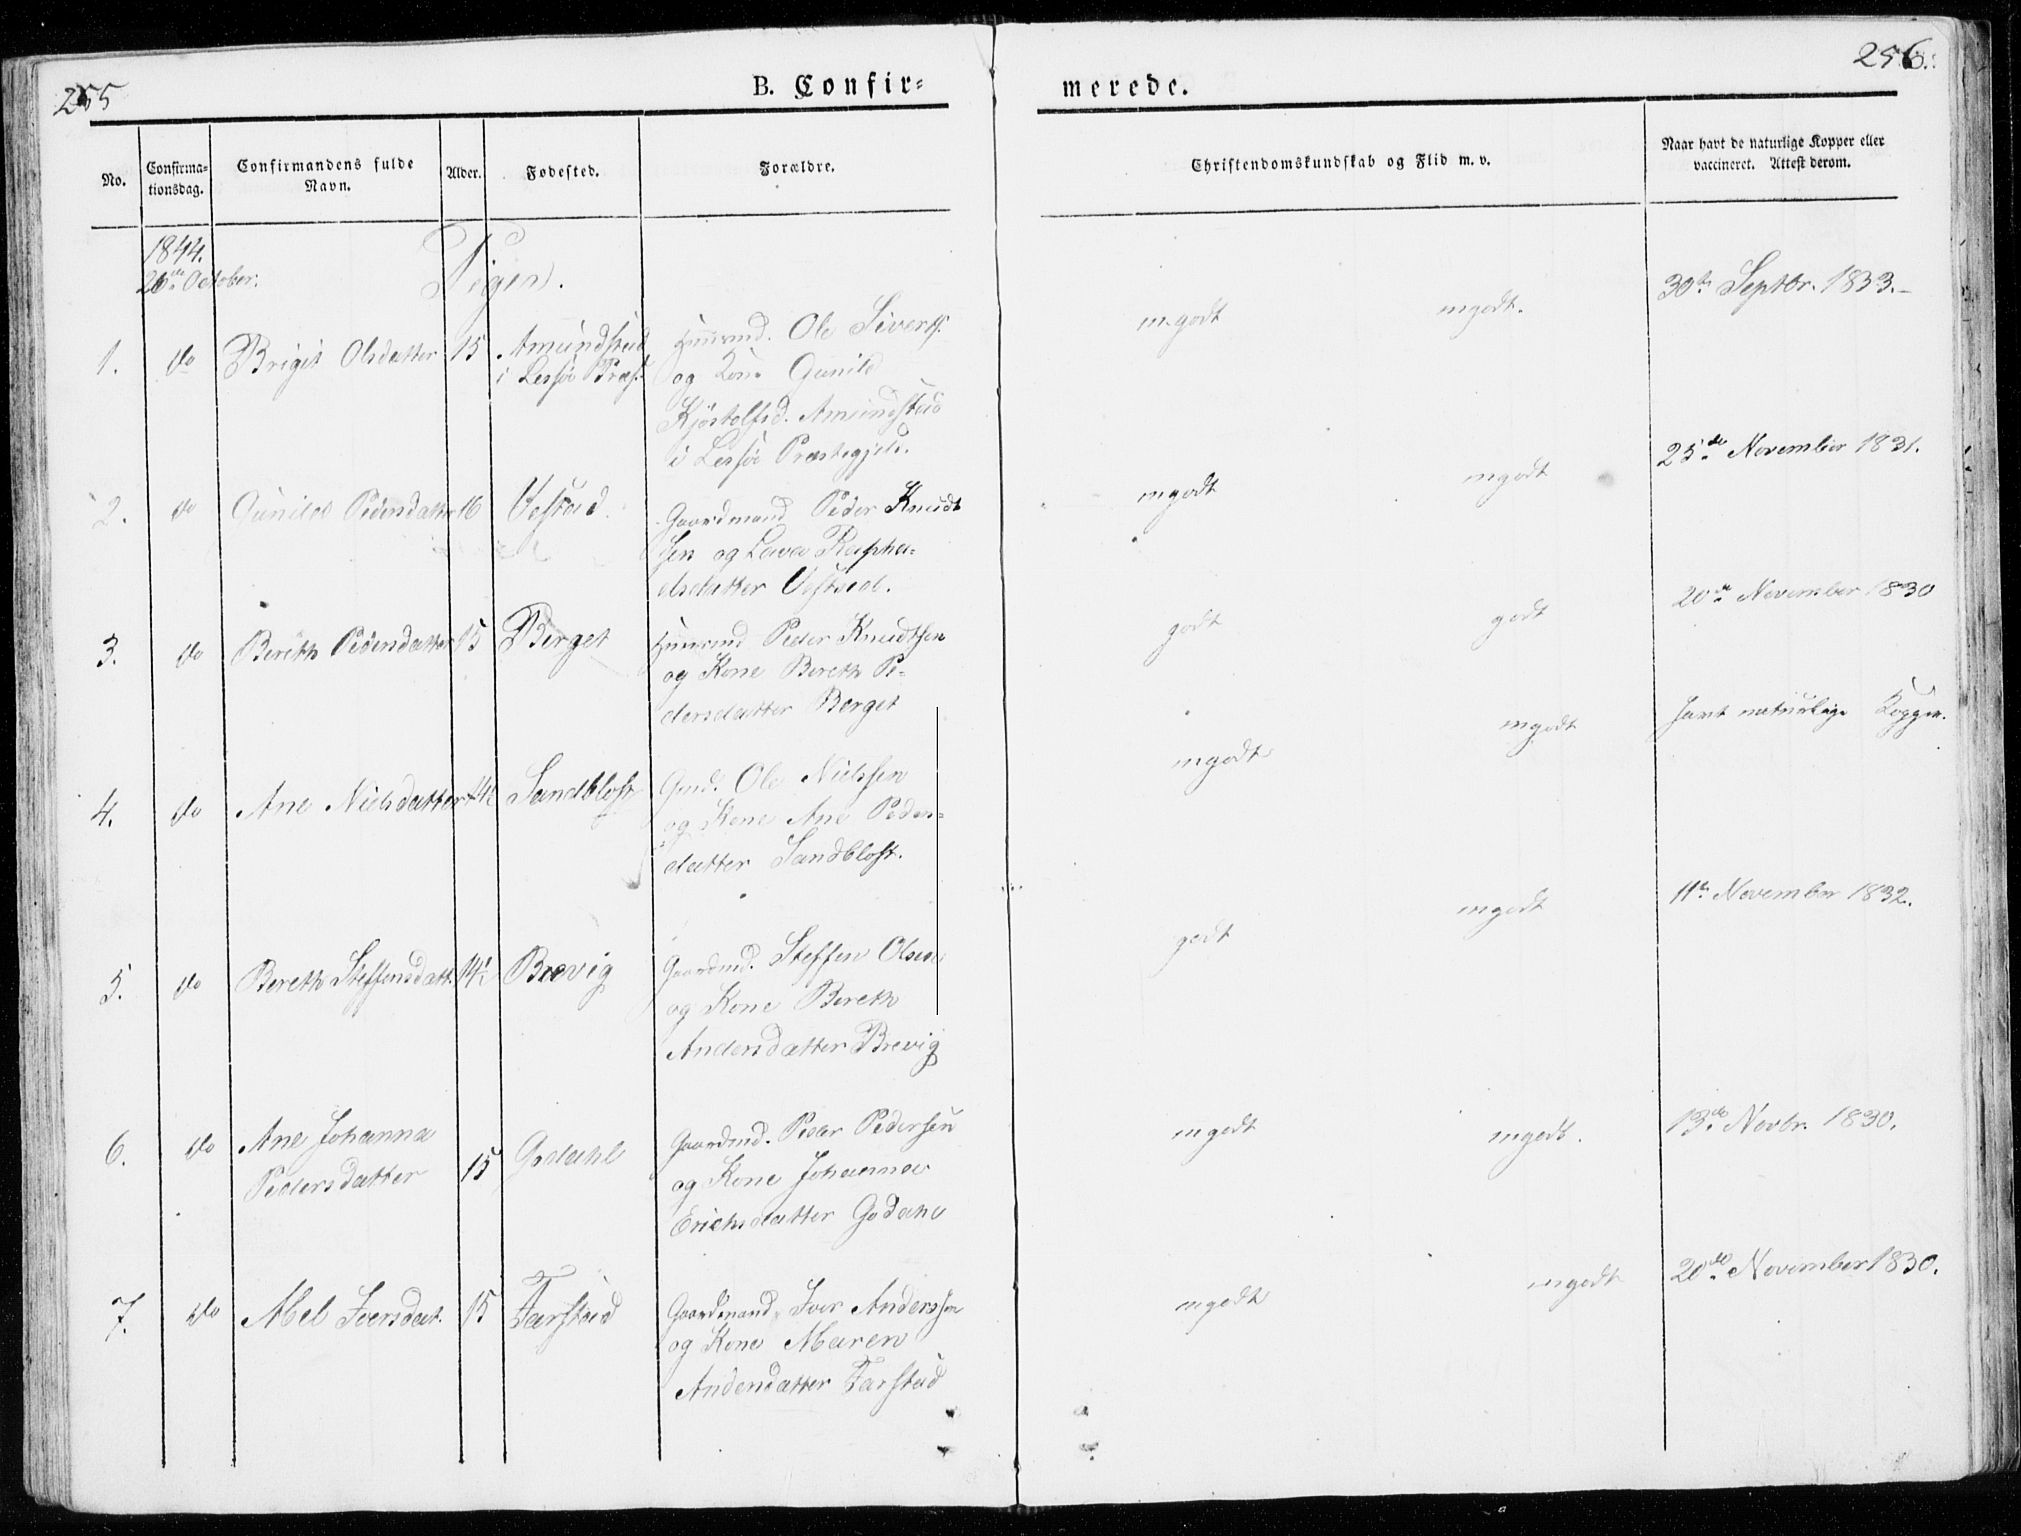 255
256.
B. Confir= merede.
No.
Confirma-
tionsdag.
Confirmandens fulde
Navn.
Alder.
Fødested.
Forældre.
Christendomskundskab og Flid m. v.
Naar havt de naturlige Kopper eller
vaccineret. Attest derom.
1844.
October.
Piger.
1. do Brigit Olsdatter 15 Amundstad
i Lessøe Præst
Huusmd. Ole Siverts.
og Kone Gunild
Amundstad
i Lessøe Præstegjeld.
mgodt
mgodt.
30te Septbr. 1833.
2. do Gunild Pedersdatter 16 Vestad
Gaardmand Peder Knudt
sen og Rapha-
elsdatter Vestad.
mgodt
mgodt
25de November 1831.
3. do Bereth Pedersdatter 15 Berget
Huusmd Peder Knudtsen
og Kone Bereth Pe-
dersdatter Berget
godt
godt
20de November 1830
4. do Ane Nielsdatter 14½ Sandblost
Gmd. Ole Nielssen
og Kone Ane Peders-
datter Sandblost.
mgodt
mgodt
havt naturlige Kopper.
5. do Bereth Steffensdatt. 14½ Brevig
Gaardmd. Steffen Olsen
og Kone Bereth
Andersdatter Brevig
godt
mgodt
11te November 1832.
6. do Ane Johanna
Pedersdatter 15 Godahl
Gaardmd. Peder Pedersen
og Kone Johanna
Erichsdatter Godahl
mgodt
mgodt.
13de Novbr. 1830.
7. do Abel Iversdat. 15 Farstad
Gaardmand Iver Anderssen
og Kone Maren
Andersdatter Farstad
mgodt
mgodt
20de November 1830.